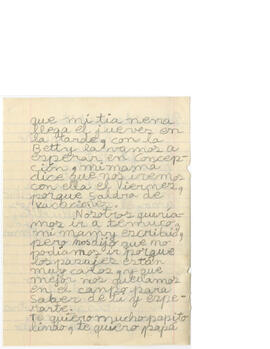 que mi tia nena
llega el jueves en
la tarde, con la
Betty la vamos a
esperar en concep-
ción, mi mamá
dice que nos iremos
con ella el viernes,
porque saldrá de
vacaciones.
Nosotros queria-
mos ir a temuco,
mi mami escribió,
pero nos dijo que no
podiamos ir porque
los pasajes están
muy carlos, y que
mejor nos quedamos
en el campo para
saber de ti y espe-
rarte.
te quiero mucho papito
lindo, te quiero papá